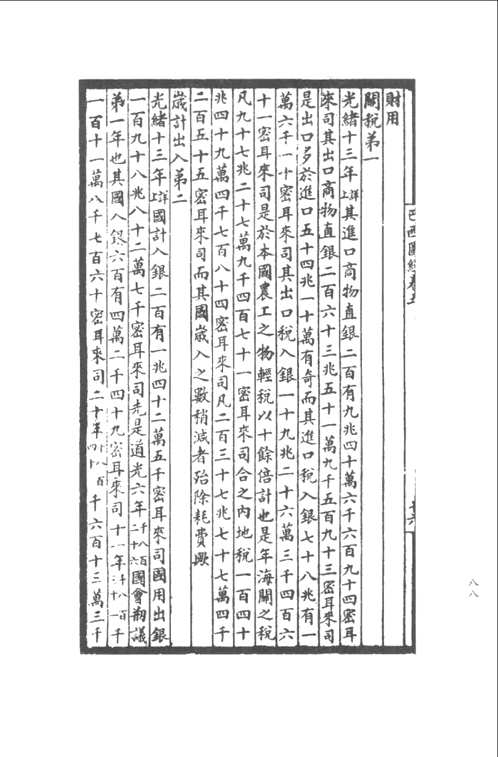 巴西圖經卷五
財用
關稅第一
光緒十三年詳上其進口商物直銀二百有九兆四十萬六千六百九十四密耳
來司其出口商物直銀二百六十三兆五十一萬九千五百九十三密耳來司
是出口多於進口五十四兆一十萬有奇而其進口稅入銀七十八兆有一
萬六千一十密耳來司其出口稅入銀一十九兆二十六萬三千四百六
十一密耳來司是於本國農工之物輕稅以十餘倍計也是年海關之稅
凡九十七兆二十七萬九千四百七十一密耳來司合之內地稅一百四十
兆四十九萬四千七百八十四密耳來司凡二百三十七兆七十七萬四千
二百五十五密耳來司而其國歲入之數稍減者殆除耗費歟
歲計出入第二
光緒十三年詳上國計入銀二百有一兆四十二萬五千密耳來司國用出銀
一百九十八兆八十二萬七千密耳來司先是道光六年千八百二十六國會朔議
第一年也其國入銀六百有四萬二千四十九密耳來司十一年千八百三十一千
一百十一萬八千七百六十密耳來司二十年千八百四十千六百十三萬三千
八八